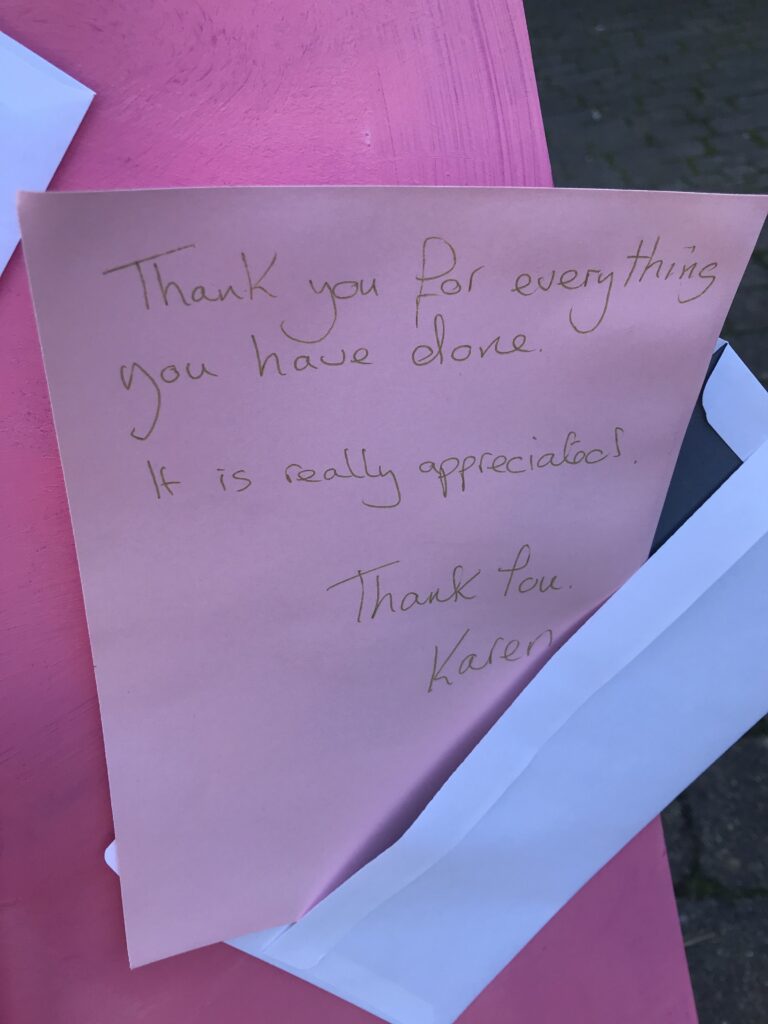 Thank you for everything
you have done.
It is really appreciated.
Thank You.
Karen